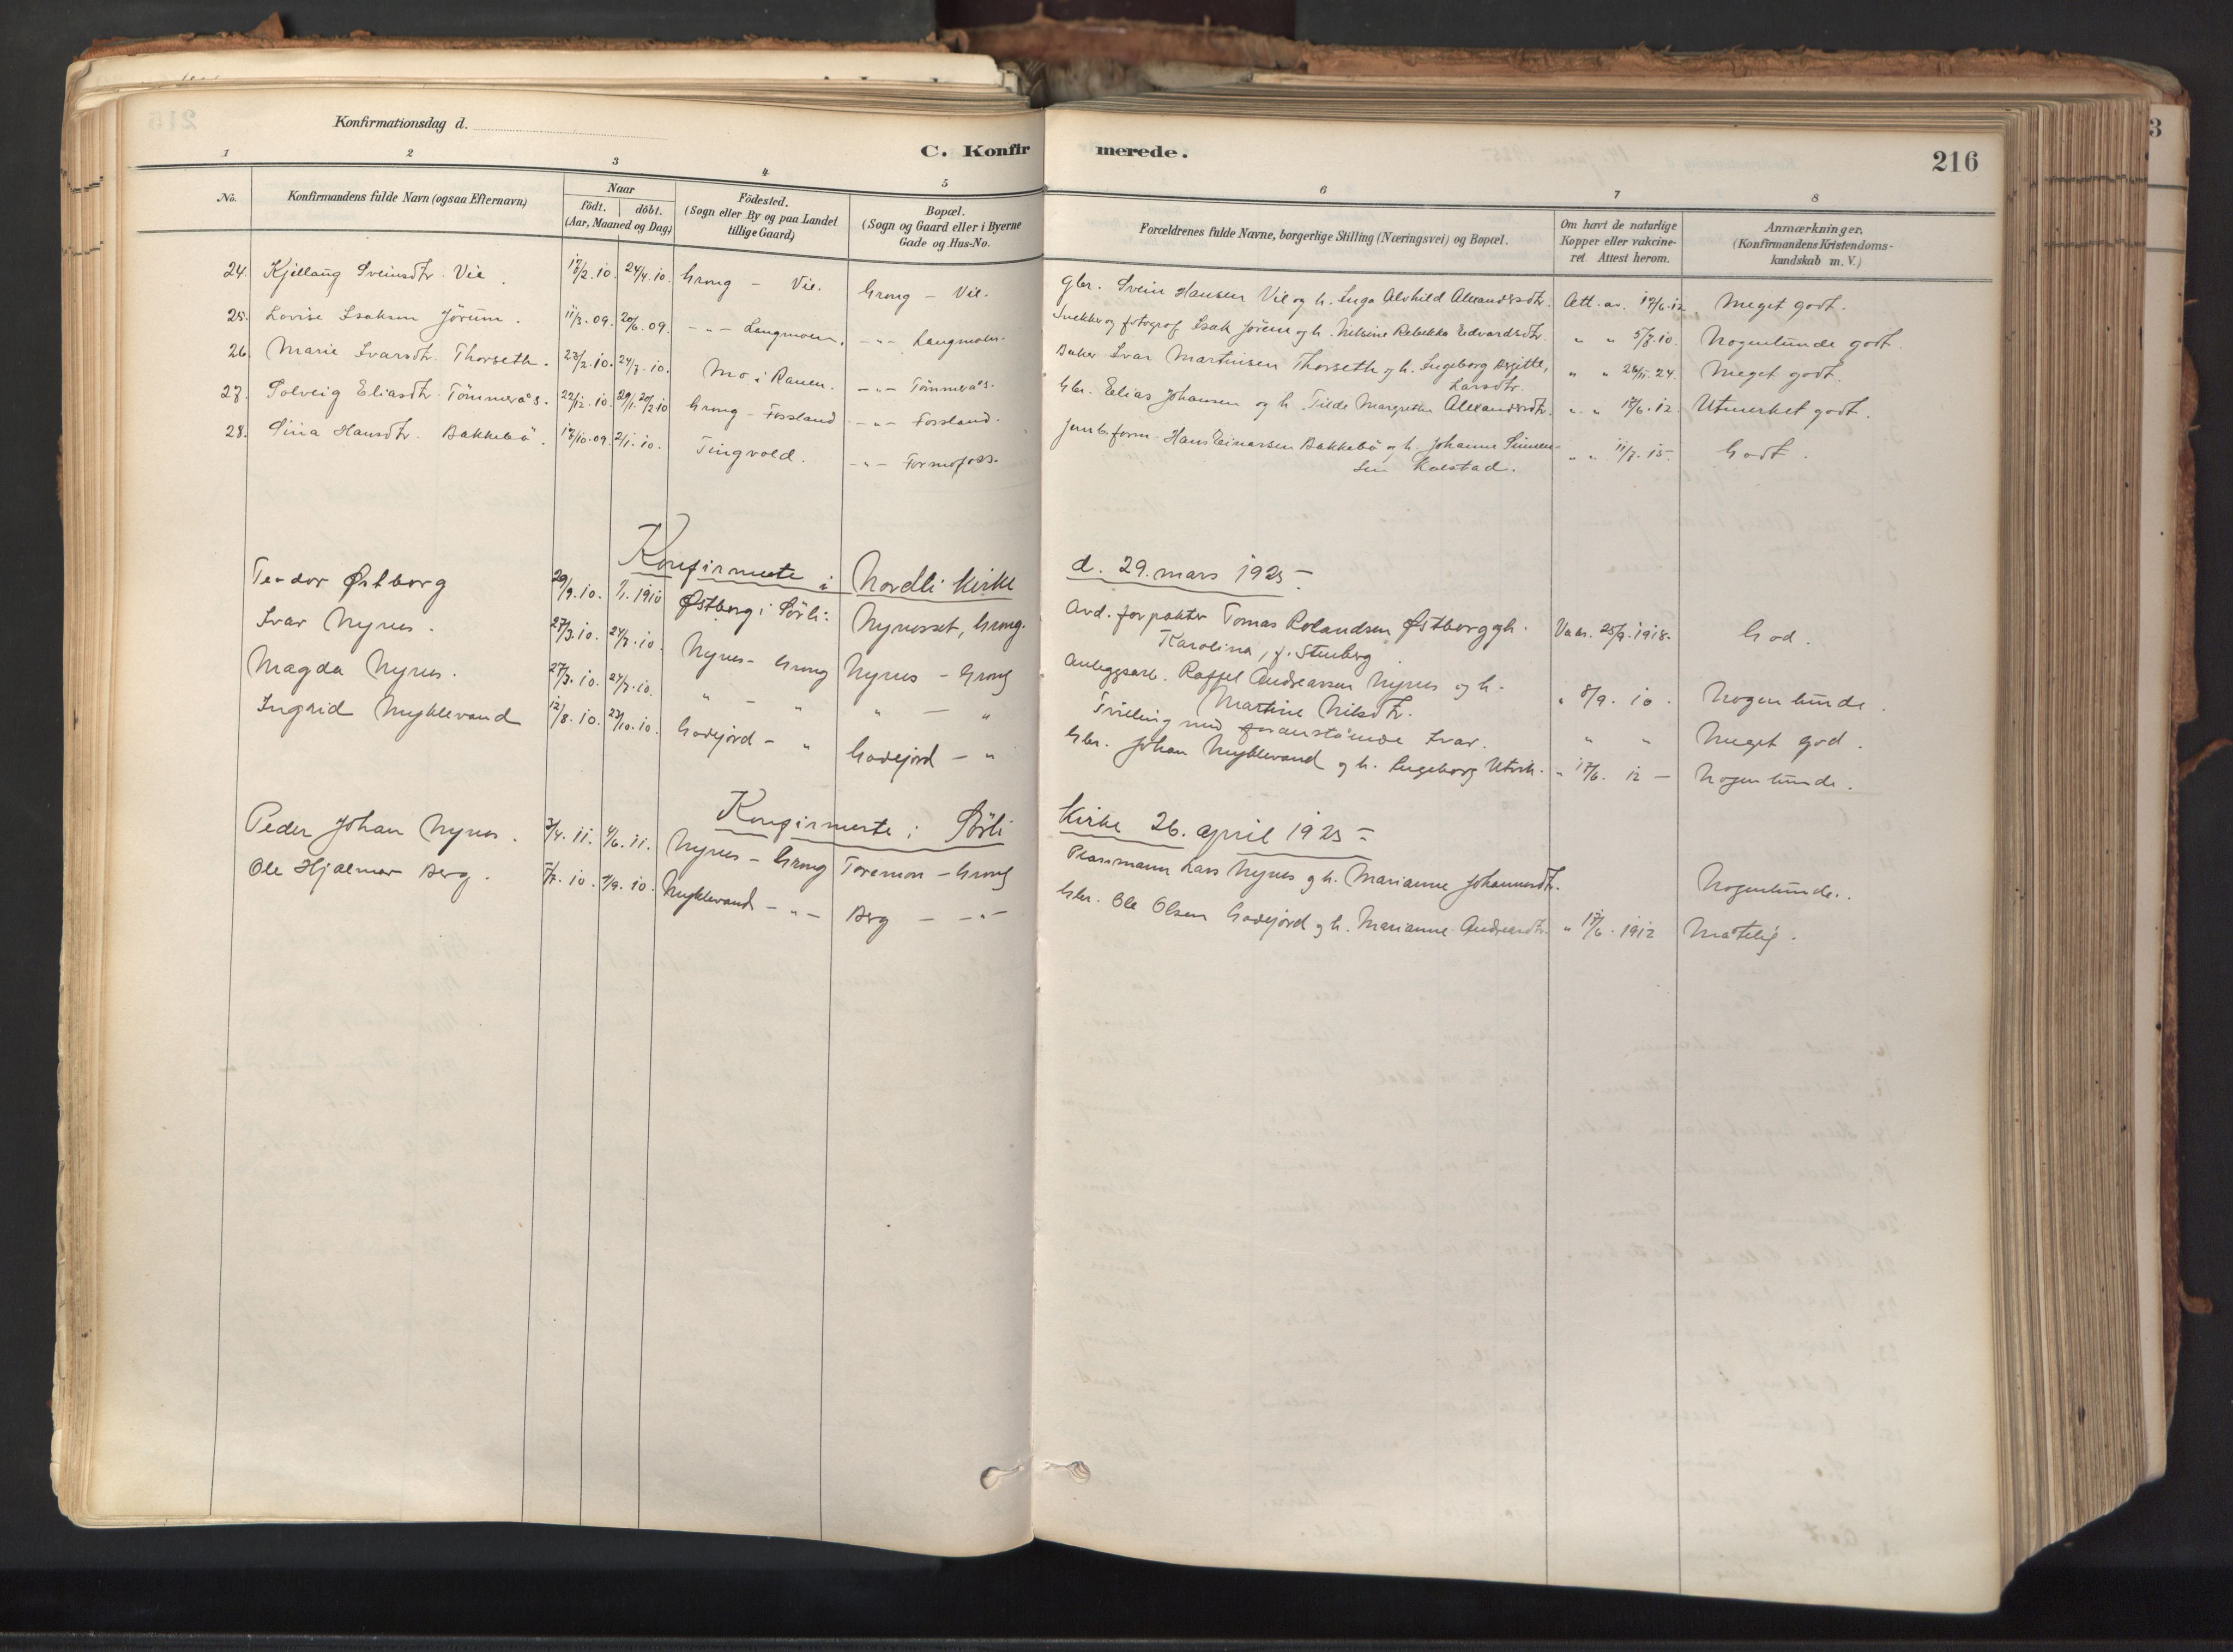 Konfirmationsdag d.
C. Konfirmerede.
216
1 2 3 4 5 6 7 8
No.
Konfirmandens fulde Navn (ogsaa Efternavn)
Naar
født. døbt.
(Aar, Maaned og Dag)
Födested.
(Sogn eller By og paa Landet
tillige Gaard)
Bopæl.
(Sogn og Gaard eller i Byerne
Gade og Hus-No.
Forældrenes fulde Navne, borgerlige Stilling (Næringsvei) og Bopæl.
Om havt de naturlige
Kopper eller vakcine-
ret. Attest herom.
Anmærkninger.
(Konfirmandens Kristendoms-
kundskab m. V.)
24. Kjellaug Sveinsdtr. Vie. 17/2.10. 24/4.10. Grong - Vie. Grong - Vie. Gbr. Svein Hansen Vie og h. Inga Alvhild Alexandersdtr. Att. av. 17/6.12. Meget godt.
25. Lovise Isaksen Jørum. 11/3.09. 20/6.09. -"- Langmoen. -"- Langmoen. Snekker og fotograf Isak Jørum og h. Nilsine Rebekka Edvardsdtr. " " 5/8.10. Nogenlunde godt.
26. Marie Ivarsdtr. Thorseth. 23/2.10. 24/7.10. Mo i Ranen. -"- Tømmerås. Baker Ivar Martinsen Thorseth og h. Ingeborg Birgitte, " " 26/11.24. Meget godt.
Larsdtr.
27. Solveig Eliasdtr. Tømmerås. 22/12.10. Grong - Fossland -"- Fossland. Gbr. Elias Johansen og h. Tilde Margrethe Alexandersdtr. " " 17/6.12. Utmerket godt.
28. Sina Hansdtr. Bakkebø. 17/10.09. 2/1.10. Tingvold. -"- Formofoss. Jernb.form. Hans Einarsen Bakkebø og h. Johanne " " 11/7.15. Godt.
Kolstad.
Konfirmerte i Nordli Kirke d. 29. mars 1925
Teodor Østborg 29/9.10. 1/1.1910 Østborg i Sörli: Nynesset, Grong. Avd. forpakter Tomas Rolandsen Østborg og h. Vacs. 25/9.1918. God.
Karolina, f. Stenberg
Ivar Nynes. 27/3.10. 24/7.10. Nynes - Grong Nynes - Grong Anleggsarb. Raffel Andreassen Nynes og h. " 8/9.10. Nogenlunde.
Martine Nilsdtr.
Magda Nynes. 27/3.10. 24/7.10. " - " " - " Tvilling med foranstående Ivar. " " Meget god.
Ingrid Myklevand 12/8.10. 23/10.10. Gavejord - " Gavejord - " Gbr. Johan Myklevand og h. Ingeborg Utvik. " 17/6.12 - Nogenlunde.
Konfirmerte i Sörli Kirke 26. april 1925
Peder Johan Nynes. 3/4.11. 4/6.11. Nynes - Grong Toremon - Grong Plassmann Lars Nynes og h. Marianne Johannesdtr. Nogenlunde.
Ole Hjalmar Berg. 5/7.10. 4/9.10. Myklevand -"- Berg -"- Gbr. Ole Olsen Gavejord og h. Marianne Andreasdtr. " 17/6.1912 Måtelig.